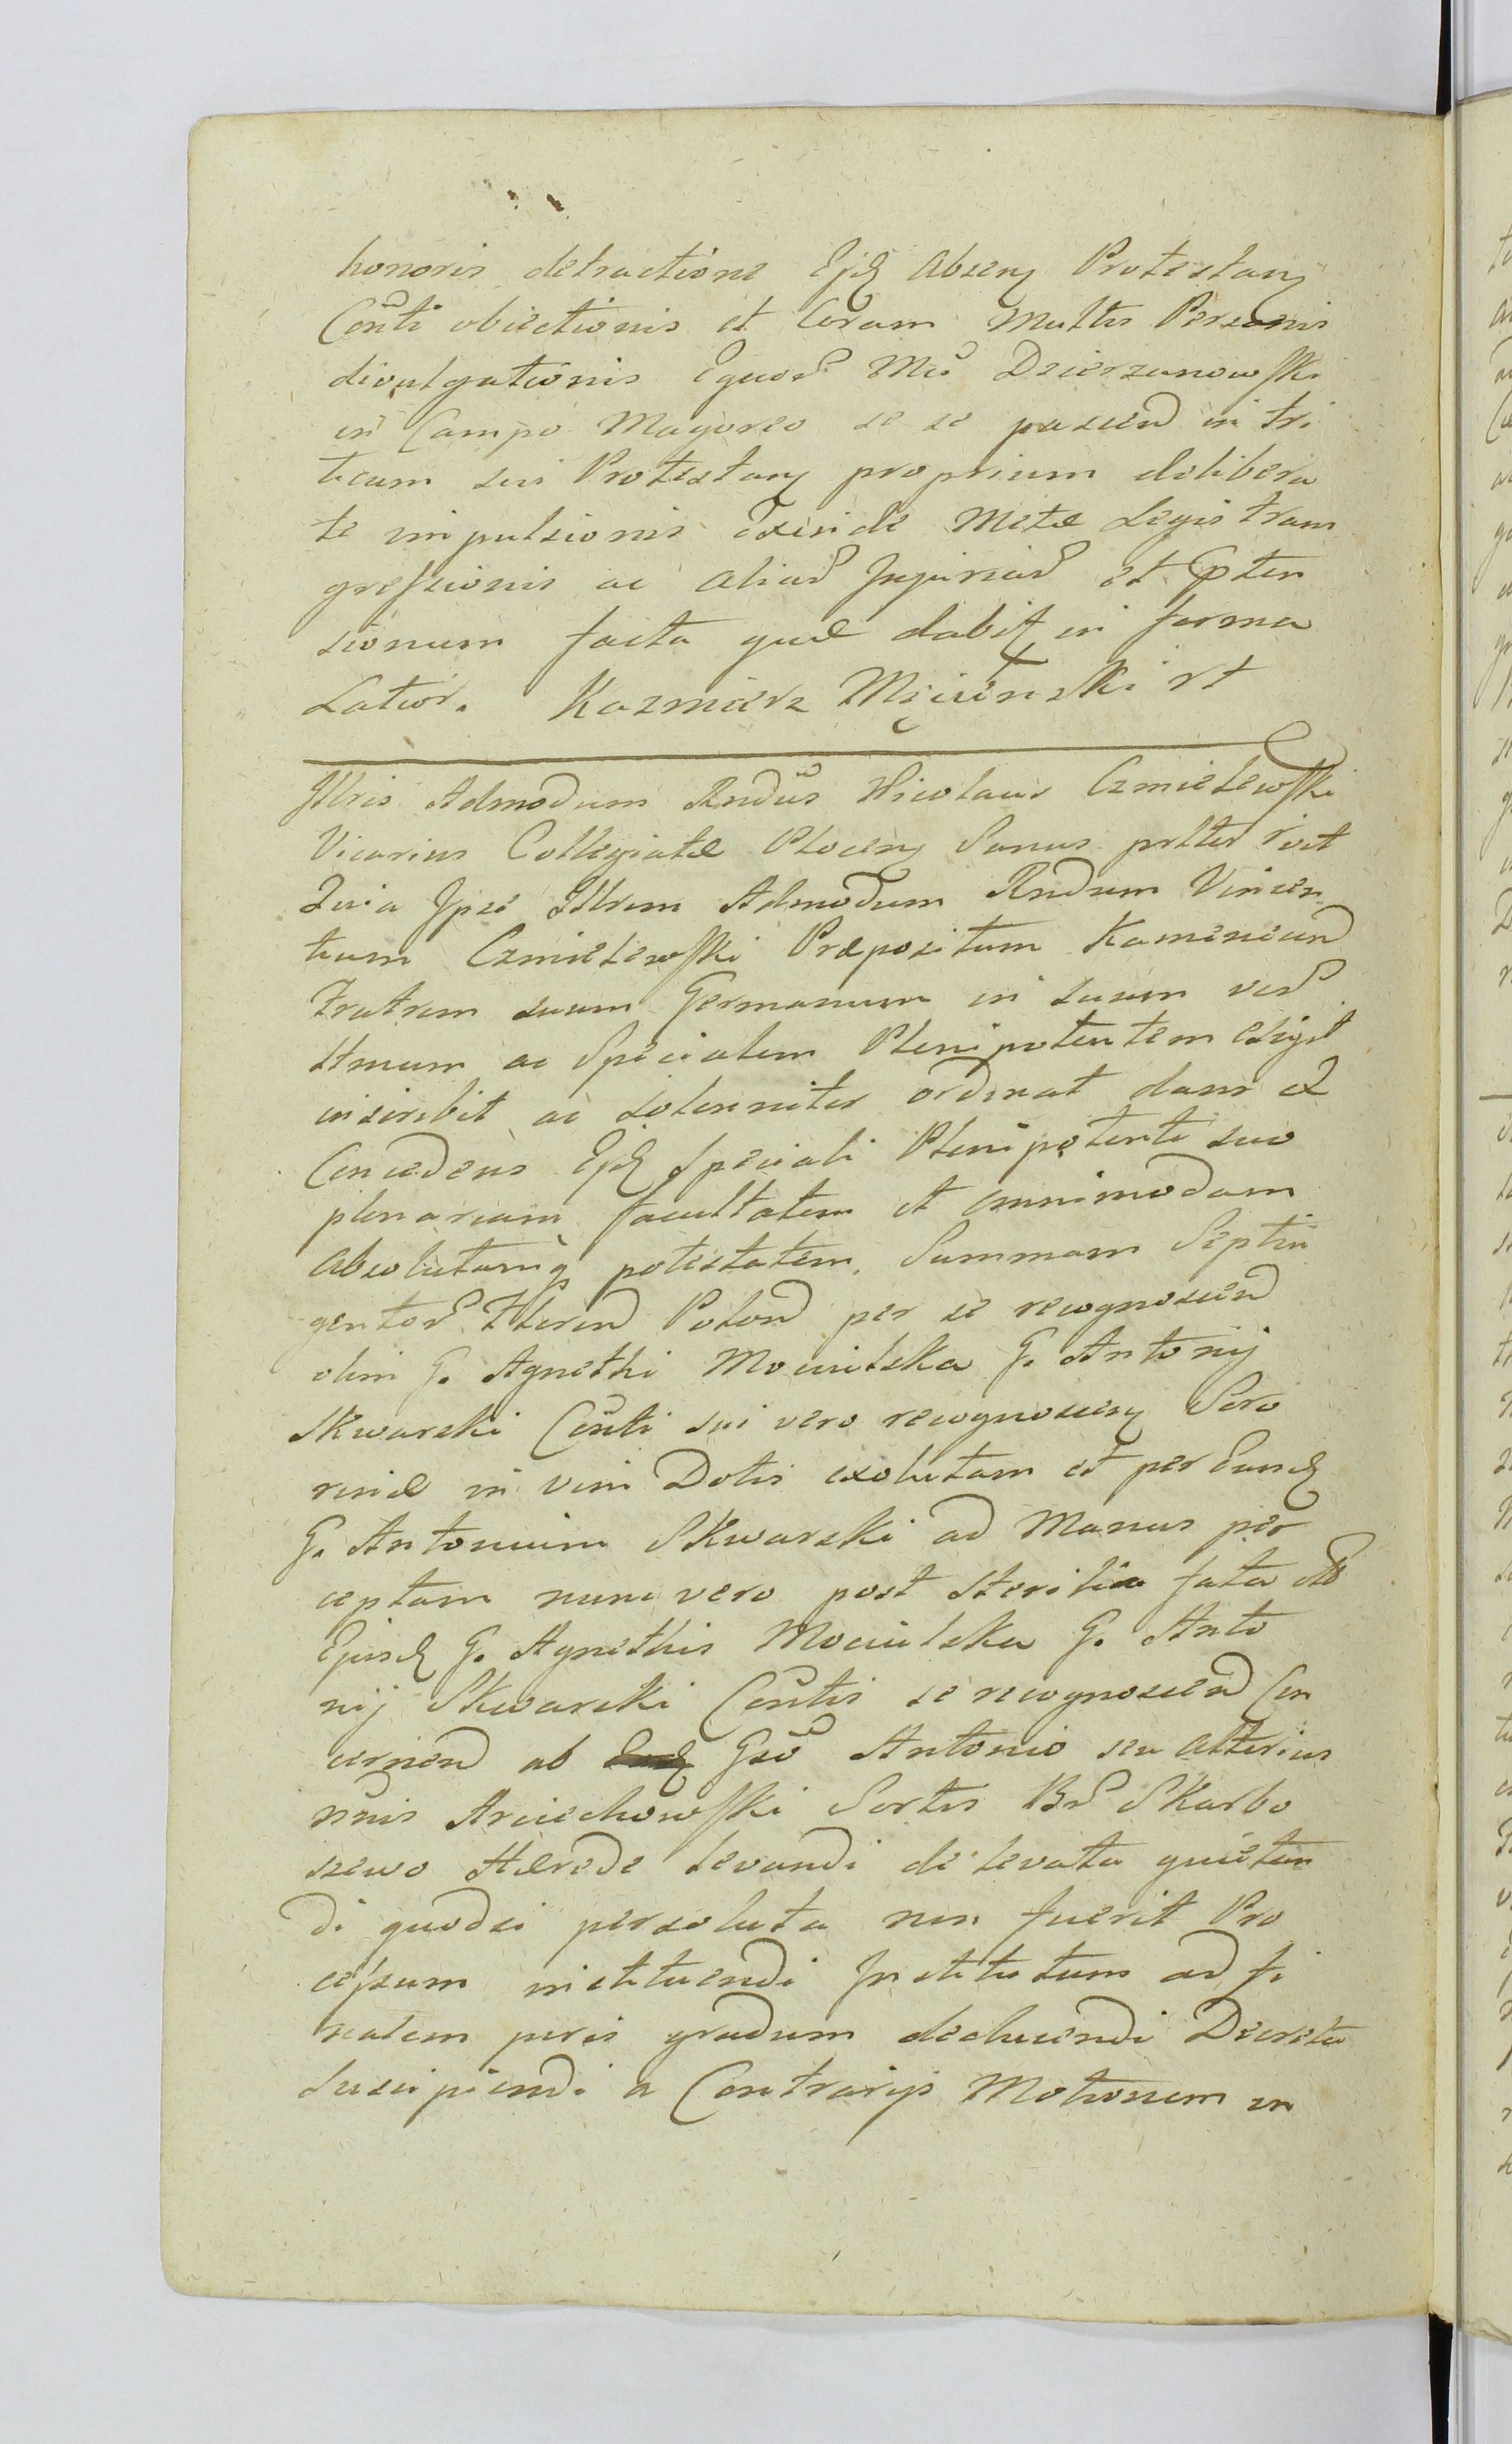 honoris detractione Ejd Absenȝ Protestanȝ
Conti obiectionis et Coram Multis Personis
divulgationis Equor Mci Dzierzanowski
in Campo Magoreo se se pascend in tri
ticum sui Protestanȝ proprium delibera
te impulsionis exinde Metæ Legis trans
gressionis ac aliar Injuriar et pten
sionum facta quæ dabit in forma
Latior. Kazmierz Męcinski rt
Illris Admodum Rndus Nicolaus Czmielewski
Vicarius Collegiatæ Plocenȝ Sanus pltter rvit
Quia Ipse Illrem Admodum Rndum Vincen
tium Czmielewski Præpositum Kamencand
Fratrem suum Germanum in suum ver
stmum ac Specialem Plenipotentem eligit
inscribit ac solenniter ordinat dans et
Concedens Ejd Speciali Plenipotenti suo
plenariam facultatem et omnimodam
absolutamq potestatem, Summam Septin
gentor Fleren Polon per se recognoscend
olim G. Agnethi Mociulska G. Antonij
Skwarski Conti sui vero recognoscenȝ Soro
rinæ in vim Dotis exolutam et per Eund
G. Antonium Skwarski ad Manus per
ceptam nunc vero post sterilia fata
Ejusd G. Agnethis Mociulska G. Anto
nij Skwarski Contis se recognoscend Con
cernend ab Gso Antonio seu alterius
nnis Arciechowski Sortis Br Skarbo
szewo Hærede levandi de levata quietan
di quodsi persoluta non fuerit Pro
cessum instituendi Institutum ad fi
nalem juris gradum deducendi Decreta
Suscipiendi a Contrarijs Motionem in